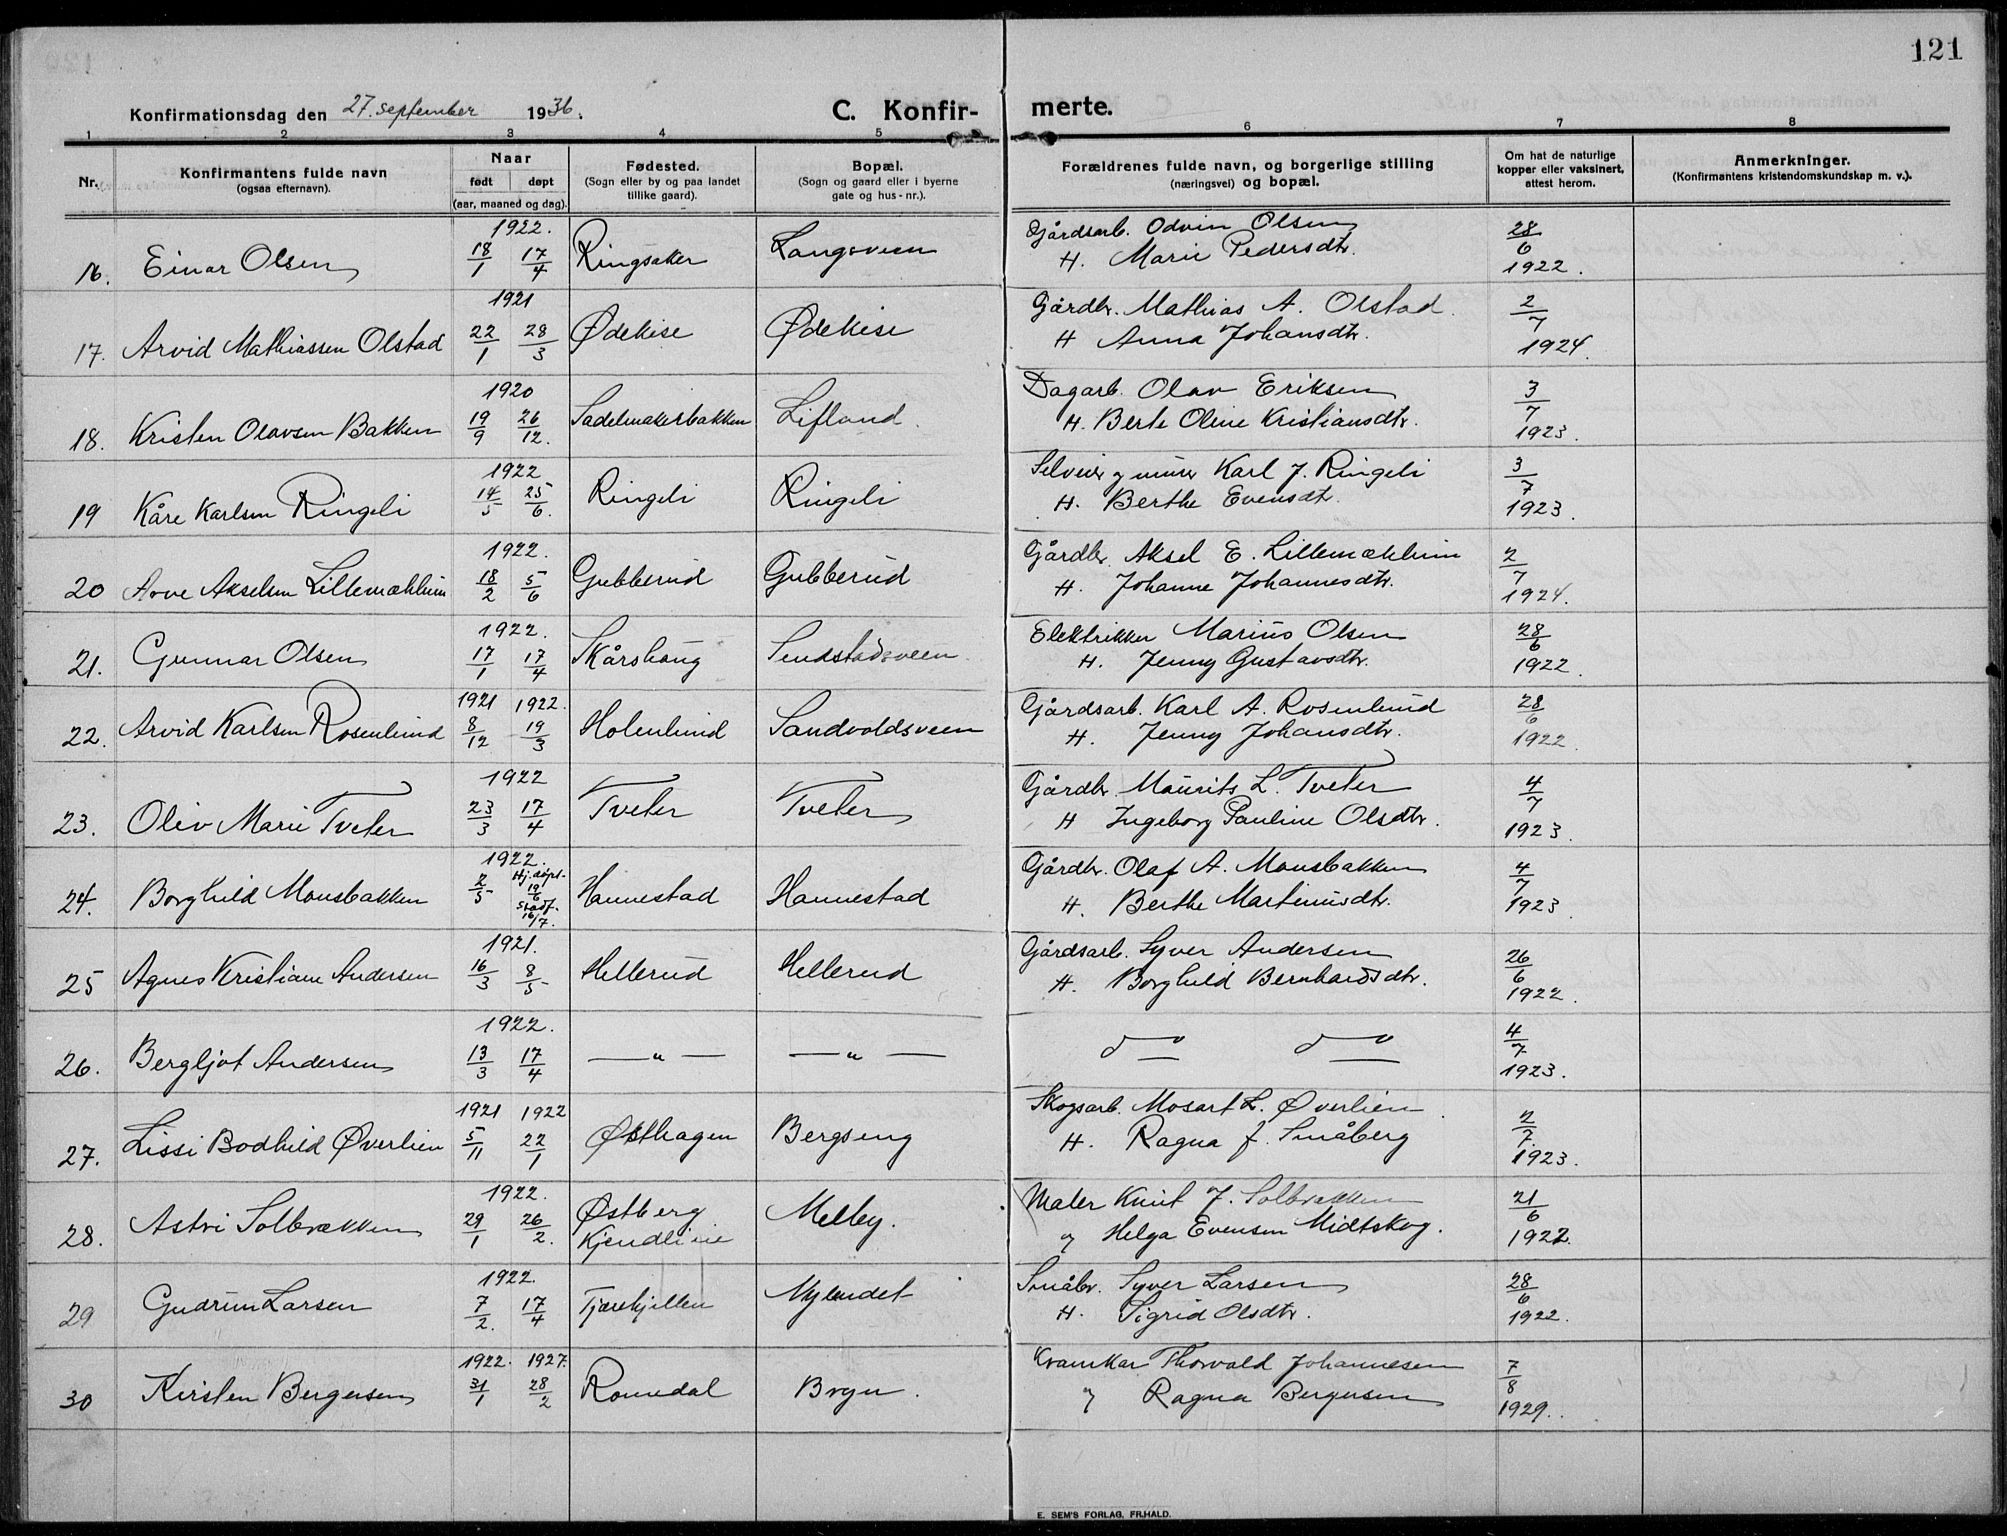 121
Konfirmationsdag den 27. september 1936. C. Konfir- merte.
1 2 3 4 5 6 7 8
Nr. Konfirmantens fulde navn (ogsaa efternavn). Naar født døpt (aar, maaned og dag). Fødested. (Sogn eller by og paa landet tillike gaard). Bopæl. (Sogn og gaard eller i byerne gate og hus-nr.). Forældrenes fulde navn, og borgerlige stilling (næringsvei) og bopæl. Om hat de naturlige kopper eller vaksinert, attest herom. Anmerkninger. (Konfirmantens kristendomskundskap m. v.).
16. Einar Olsen 1922. 18/1 17/4 Ringsaker Langsveen Gårdsarb. Odvin Olsen H. Marie Pedersdtr. 28/6 1922.
17. Arvid Mathiassen Olstad 1921 22/1 28/3 Ødekise Ødekise Gårdbr. Mathias A. Olstad. H Anna Johansdtr. 2/7 1924.
18. Kristen Olavsen Bakken 1920 19/9 26/12. Sadelmakerbakken Lifland. Dagarb. Olav Eriksen H. Berte Oline Kristiansdtr. 3/7 1923.
19 Kåre Karlsen Ringeli 1922 14/5 25/6. Ringeli Ringeli Selveier og murer Karl J. Ringeli H. Berthe Evensdtr. 3/7 1923.
20 Arve Akselsen Lillemæhlum 1922. 18/2 5/6 Gubberud Gubberud Gårdbr. Aksel E. Lillemæhlum H. Johanne Johannesdtr. 2/7 1924.
21. Gunnar Olsen 1922. 17/1 17/4 Skårshaug Sendstadsveen Elektrikker Marius Olsen H. Jenny Gustavsdtr. 28/6 1922.
22. Arvid Karlsen Rosenlund 1921 1922. 8/12 19/3 Holenlund Sandvoldsveen Gårdsarb. Karl A. Rosenlund H. Jenny Johansdtr. 28/6 1922.
23. Oliv Marie Tveter 1922 23/3 17/4 Tveter Tveter Gårdbr. Maurits L. Tveter H Ingeborg Pauline Olsdtr. 4/7 1923.
24. Borghild Monsbakken 1922. 2/5 Hj. døpt. 19/6 stadf. 16/7. Hannestad Hannestad Gårdbr. Olaf A. Monsbakken H. Berthe Martinusdtr. 4/7 1923.
25 Agnes Kristiane Andersen 1921. 16/3 8/5 Hellerud Hellerud Gårdsarb. Syver Andersen H. Borghild Bernhardsdtr. 26/6 1922.
26. Bergljot Andersen 1922. 13/3 17/4 — " — — " — do do 4/7 1923.
27. Lissi Bodhild Øverlien 1921 1922 5/11 22/1 Østhagen Bergseng Skogsarb. Mosart L. Øverlien. H. Ragna f. Småberg 2/7 1923.
28. Astri Solbrækken 1922. 29/1 26/2. Østberg Kjendlie Melby. Maler Knut J. Solbrækken og Helga Evensen Midtskog. 21/6 1922.
29 Gudrun Larsen 1922. 7/2. 17/4 Tjærehjellen Nylendet Småbr. Syver Larsen H. Sigrid Olsdtr. 28/6 1922.
30 Kirsten Bergersen 1922. 1927. 31/1 28/2 Romedal Bryn. Kramkar Thorvald Johannesen og Ragna Bergersen 7/8 1929.
E. SEM'S FORLAG, FR.HALD.